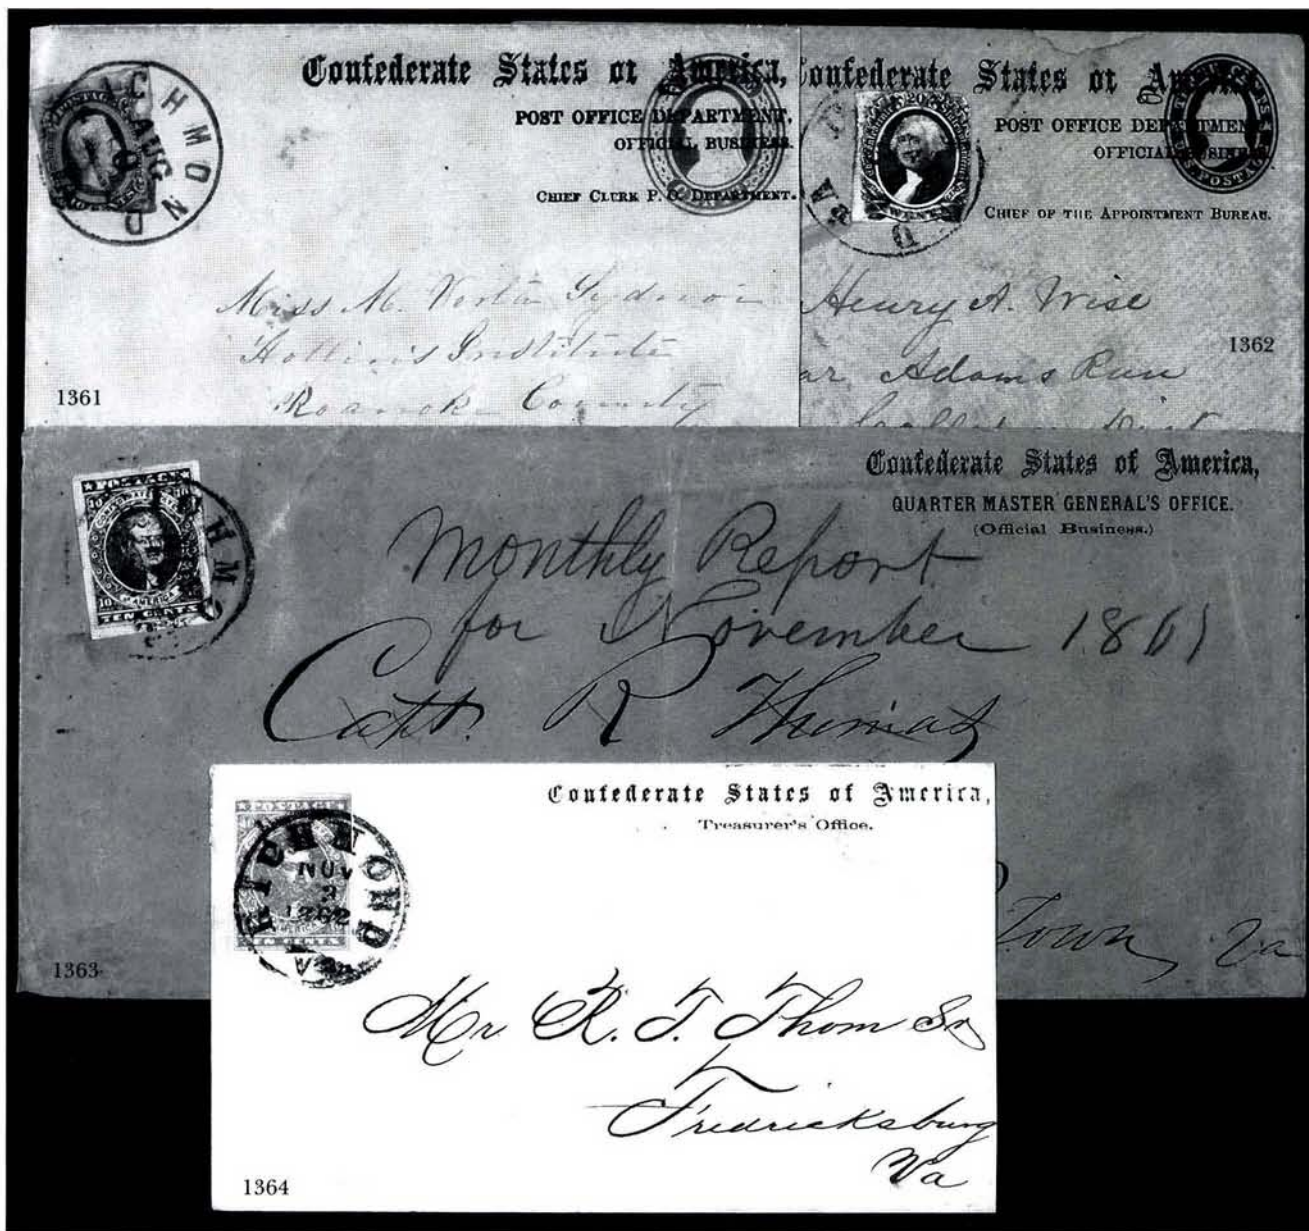 Confederate States of America,
POST OFFICE DEPARTMENT.
OFFICIAL BUSINESS.
CHIEF CLERK P. O. DEPARTMENT.
POSTAGE
RICHMOND
AUG
Miss M.
Hollins Institute
Roanoke County
1361
Confederate States of America
POST OFFICE DEPARTMENT,
OFFICIAL BUSINESS.
CHIEF OF THE APPOINTMENT BUREAU.
20
TWENTY
POSTAGE
Va
Henry A. Wise
1362
ar Adams Run
Dist
Confederate States of America,
QUARTER MASTER GENERAL'S OFFICE.
(Official Business.)
POSTAGE
10 10
AMERICA
10
TEN CENTS
CHMO
Monthly Report
for November 1861
Capt. R
Town, Va
1363
Confederate States of America,
Treasurer's Office.
POSTAGE
RICHMOND
NOV
3
1862
VA
TEN CENTS
Mr R. T. Thom Sr
Fredricksburg
Va
1364